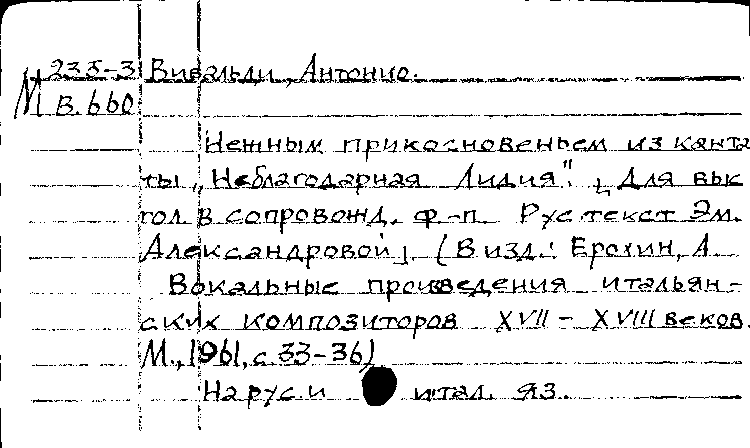 М 235-3 Вивальди, Антонио.
В.660
Нежным прикосновеньем из канта
ты „Неблагодарная Лидия". [Для вы
гол. в сопровожд. ф-п. Рус текст Эм.
Александровой]. (В изд.: Ерохин, А.
Вокальные произведения итальян-
ских композиторов XVII - XVIII веков.
М., 1961, с. 33-36)
На рус. и итал. яз.